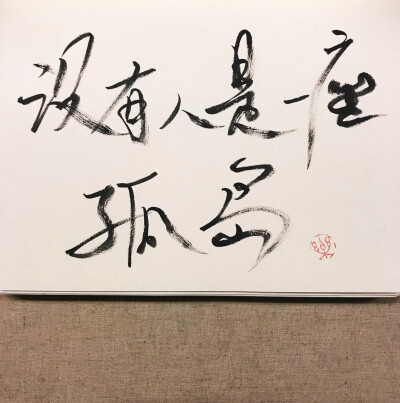 没有人是一座
孤岛